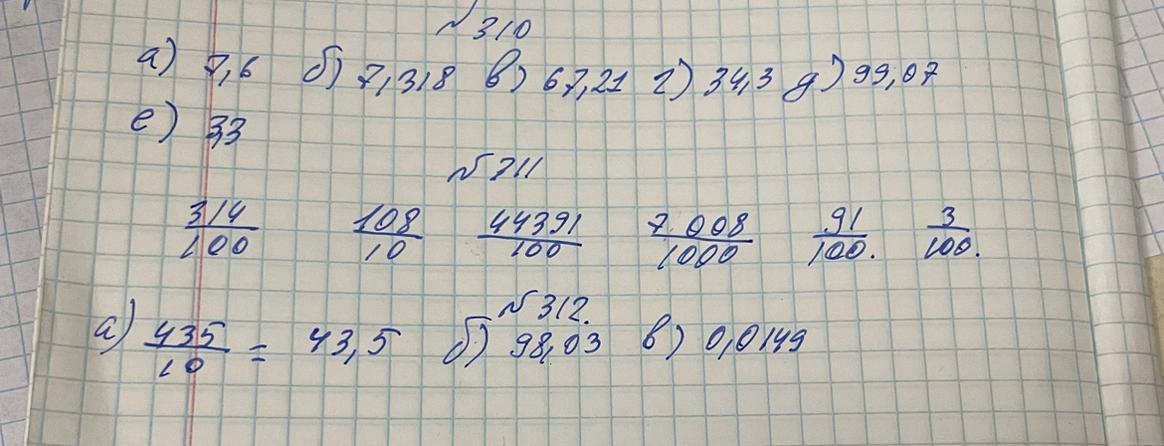 №310
а) 7,6 б) 7,318 в) 67,21 г) 34,3 д) 99,07
е) 3,3
№311
314/100 108/10 44391/100 7008/1000 91/100. 3/100.
№312.
а) 435/10 = 43,5 б) 98,03 в) 0,0149